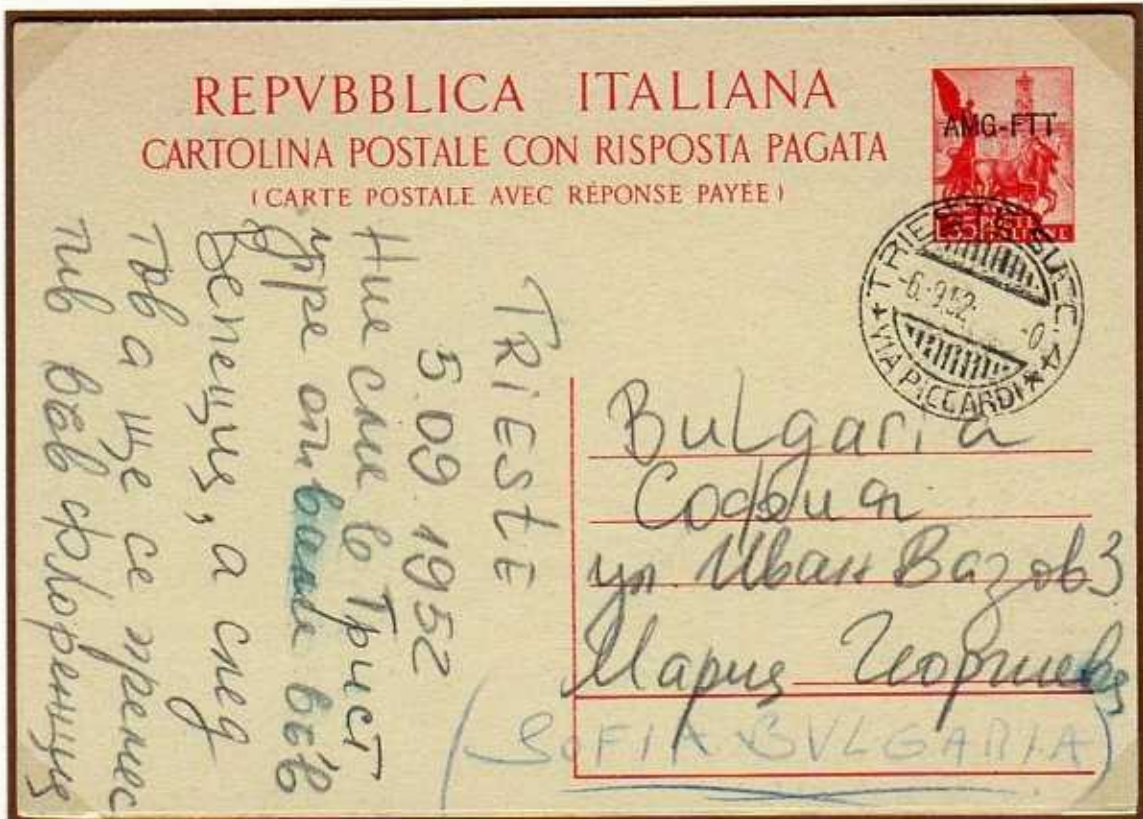 REPVBBLICA ITALIANA
CARTOLINA POSTALE CON RISPOSTA PAGATA
(CARTE POSTALE AVEC RÉPONSE PAYÉE)
AMG-FTT
35 POSTE ITALIANE
TRIESTE SUCC. 4
-6.-9.52. -0
VIA PICCARDI
TRiESTE
5 09 1952
Ние сме в Трист
утре отиваме във
Венеция, а след
това ще се премес
тив във Флоренция
Bulgaria
София
ул. Иван Вазов 3
Мария Георгиева
(SOFIA BULGARIA)